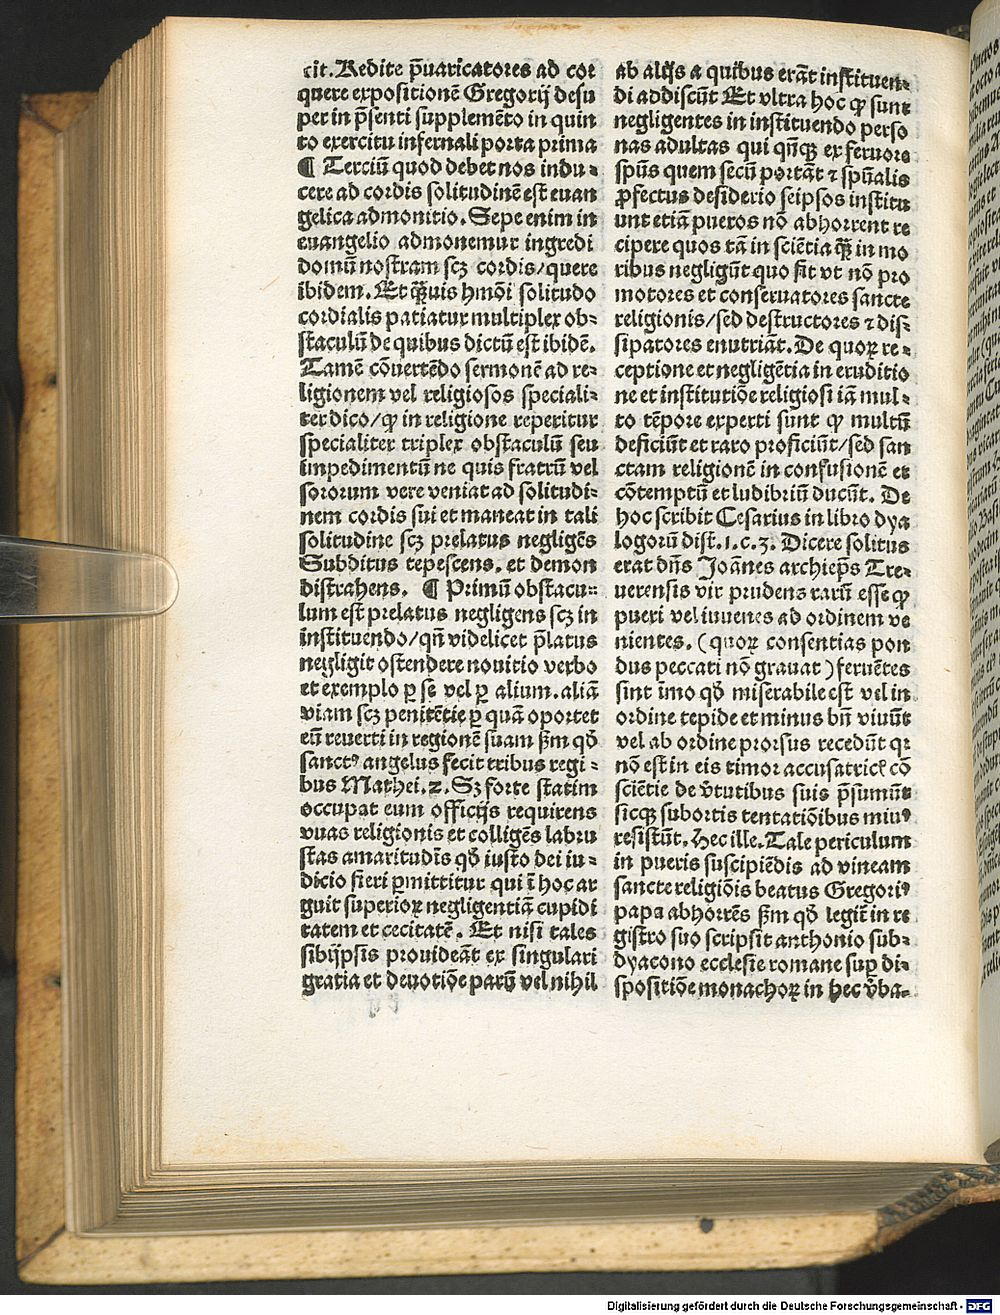 cit. Redite p̄uaricatores ad cor
quere expositionē Gregorij desu
per in p̄senti supplemēto in quin
to exercitu infernali porta prima
¶ Terciū quod debet nos indu⸗
cere ad cordis solitudinē est euan
gelica admonitio. Sepe enim in
euangelio admonemur ingredi
domū nostram scꝫ cordis/quere
ibidem. Et q̄uis hmōi solitudo
cordialis patiatur multiplex ob⸗
staculū de quibus dictū est ibidē.
Tamē cōuertēdo sermonē ad re⸗
ligionem vel religiosos speciali⸗
ter dico/ꝙ in religione reperitur
specialiter triplex obstaculū seu
impedimentū ne quis fratrū vel
sororum vere veniat ad solitudi⸗
nem cordis sui et maneat in tali
solitudine scꝫ prelatus negligēs
Subditus tepescens. et demon
distrahens. ¶ Primū obstacu⸗
lum est prelatus negligens scꝫ in
instituendo/qn̄ videlicet p̄latus
negligit ostendere nouitio verbo
et exemplo ꝑ se vel ꝑ alium. aliā
viam scꝫ penitētie ꝑ quā oportet
eū reuerti in regionē suam ẜm qḋ
sanctꝰ angelus fecit tribus regi⸗
bus Mathei.ꝛ. Sꝫ forte statim
occupat eum officijs requirens
vuas religionis et colligēs labru
stas amaritudīs qḋ iusto dei iu⸗
dicio fieri ꝑmittitur qui ī hoc ar
guit superioꝝ negligentiā cupidi
tatem et cecitatē. Et nisi tales
sibijpsis prouideāt ex singulari
gratia et deuotiōe parū vel nihil
ab alijs a quibus erāt instituen⸗
di addiscūt Et vltra hoc ꝙ sunt
negligentes in instituendo perso
nas adultas qui qn̄qꝫ ex feruore
spūs quem secū portāt ⁊ spūalis
ꝓfectus desiderio seipsos institu
unt etiā pueros nō abhorrent re
cipere quos tā in sciētia q̄ꝫ in mo
ribus negligūt quo fit vt nō pro
motores et conseruatores sancte
religionis/sed destructores ⁊ dis⸗
sipatores enutriāt. De quoꝝ re⸗
ceptione et negligētia in eruditio
ne et institutiōe religiosi iā mul⸗
to tēpore experti sunt ꝙ multū
deficiūt et raro proficiūt/sed san
ctam religionē in confusionē et
cōtemptū et ludibriū ducūt. De
hoc scribit Cesarius in libro dya
logorū dist.1.c.3. Dicere solitus
erat dn̄s Joānes archiep̄s Tre⸗
uerensis vir prudens rarū esse ꝙ
pueri vel iuuenes ad ordinem ve
nientes. (quoꝝ consentias pon
dus peccati nō grauat) feruētes
sint imo qḋ miserabile est vel in
ordine tepide et minus bn̄ viuūt
vel ab ordine prorsus recedūt qꝛ
nō est in eis timor accusatrick cō
sciētie de v̓tutibus suis p̄sumūt
sicqꝫ subortis tentatiōibus miuꝰ
resistūt. Hec ille. Tale periculum
in pueris suscipiēdis ad vineam
sancte religiōis beatus Gregoriꝰ
papa abhorrēs ẜm qḋ legit̄ in re
gistro suo scripsit anthonio sub⸗
dyacono ecclesie romane suꝑ di⸗
spositiōe monachoꝝ in hec v̓ba⸗
Digitalisierung gefördert durch die Deutsche Forschungsgemeinschaft - DFG